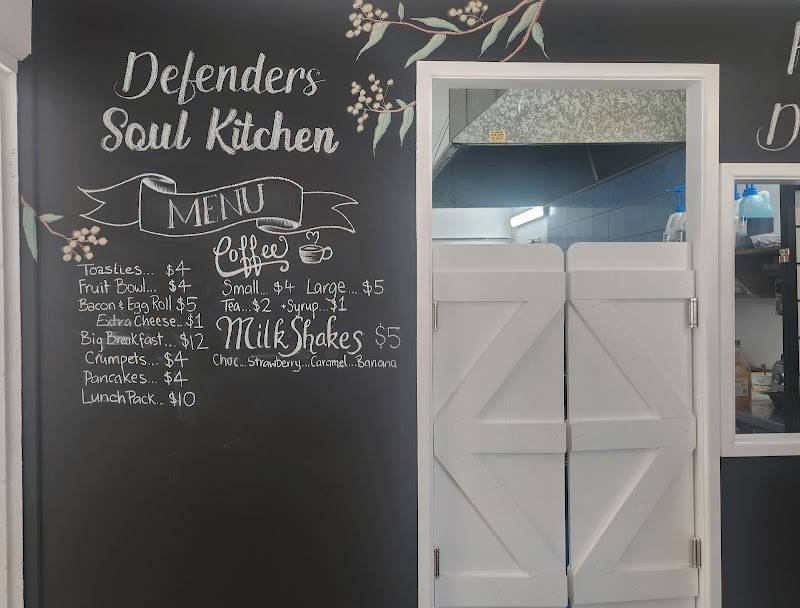 Defenders
Soul Kitchen
MENU
Toasties... $4
Fruit Bowl... $4
Bacon & Egg Roll $5
Extra Cheese.. $1
Big Breakfast... $12
Crumpets... $4
Pancakes... $4
Lunch Pack... $10
Coffee
Small... $4 Large... $5
Tea... $2 +Syrup... $1
MilkShakes $5
Choc... Strawberry... Caramel... Banana